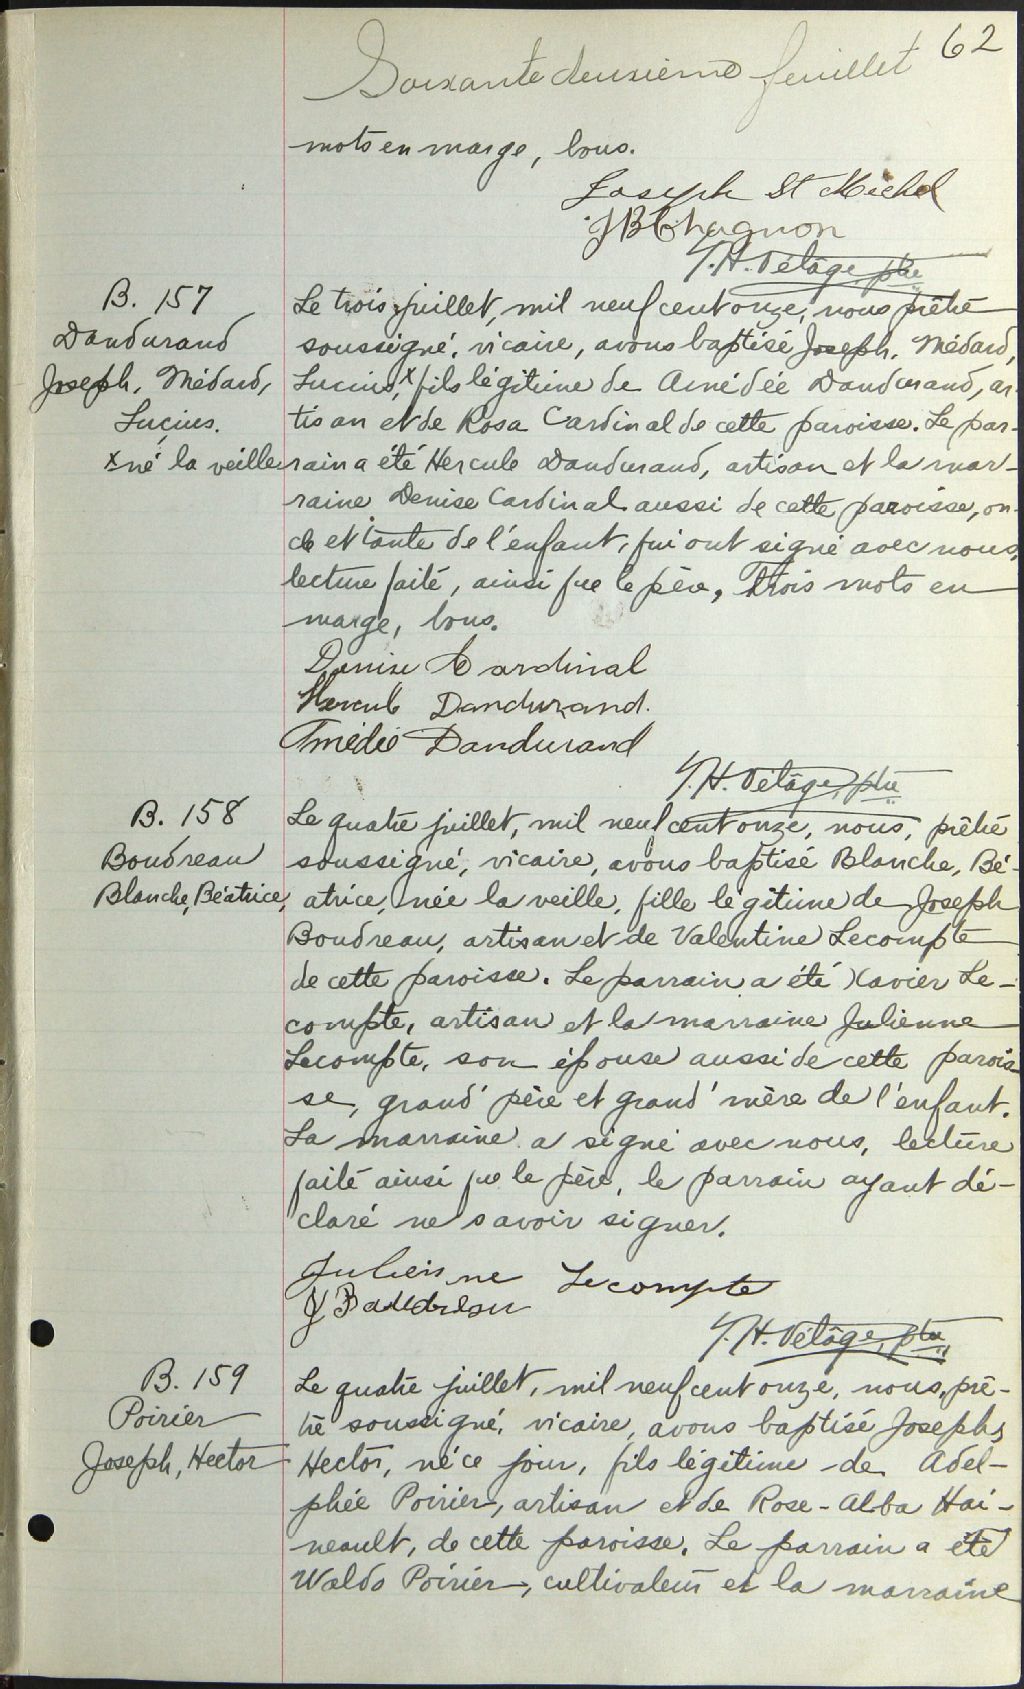 62
Soixante deuxième feuillet
mots en marge, bons.
Joseph St Michel
J B Chagnon
J. H. Délâge, ptre
B. 157
Dandurand
Joseph, Médard,
Lucius.
x né la veille
Le trois juillet, mil neuf cent onze, nous prêtre
soussigné, vicaire, avons baptisé Joseph, Médard,
Lucius, x fils légitime de Amédée Dandurand, ar-
tisan et de Rosa Cardinal de cette paroisse. Le par-
rain a été Hercule Dandurand, artisan et la mar-
raine Denise Cardinal aussi de cette paroisse, on-
cle et tante de l'enfant, qui ont signé avec nous,
lecture faite, ainsi que le père, trois mots en
marge, bons.
Denise Cardinal
Hercule Dandurand.
Amédée Dandurand
J. H. Délâge, ptre
B. 158
Boudreau
Blanche, Béatrice,
Le quatre juillet, mil neuf cent onze, nous, prêtre
soussigné, vicaire, avons baptisé Blanche, Bé-
atrice, née la veille, fille légitime de Joseph
Boudreau, artisan et de Valentine Lecompte
de cette paroisse. Le parrain a été Xavier Le-
compte, artisan et la marraine Julienne
Lecompte, son épouse aussi de cette parois
se, grand' père et grand' mère de l'enfant.
La marraine a signé avec nous, lecture
faite ainsi que le père, le parrain ayant dé-
claré ne savoir signer.
Julienne Lecompte
J Baudreau
J. H. Délâge, ptre
B. 159
Poirier
Joseph, Hector
Le quatre juillet, mil neuf cent onze, nous, prê-
tre soussigné, vicaire, avons baptisé Joseph,
Hector, né ce jour, fils légitime de Adel-
phée Poirier, artisan et de Rose-Alba Hai-
neault, de cette paroisse. Le parrain a été
Waldo Poirier, cultivateur et la marraine